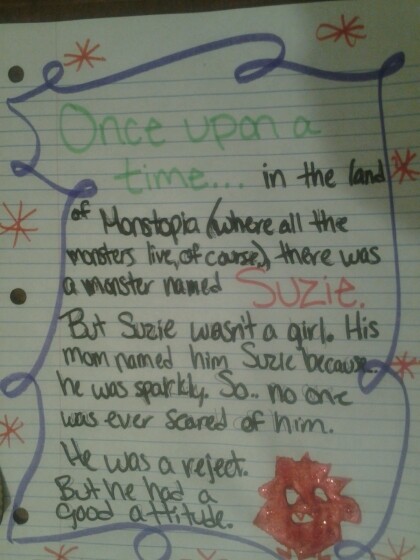 Once upon a
time... in the land
of Monstopia (where all the
monsters live, of course.) there was
a monster named Suzie.
But Suzie wasn't a girl. His
mom named him Suzie because..
he was sparkly. So.. no one
was ever scared of him.
He was a reject.
But he had a
good attitude.